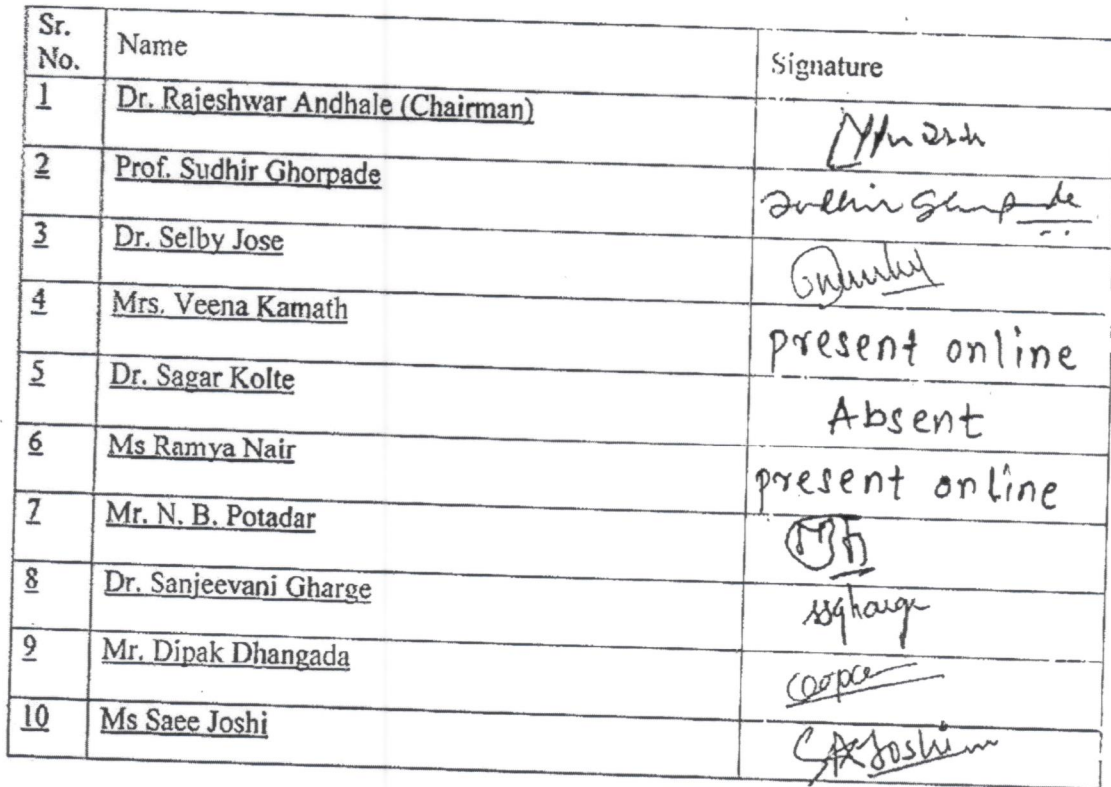 Sr. No. Name Signature
1 Dr. Rajeshwar Andhale (Chairman)
2 Prof. Sudhir Ghorpade Sudhir Ghorpade
3 Dr. Selby Jose
4 Mrs. Veena Kamath present online
5 Dr. Sagar Kolte Absent
6 Ms Ramya Nair present online
7 Mr. N. B. Potadar
8 Dr. Sanjeevani Gharge ssgharge
9 Mr. Dipak Dhangada
10 Ms Saee Joshi Joshi